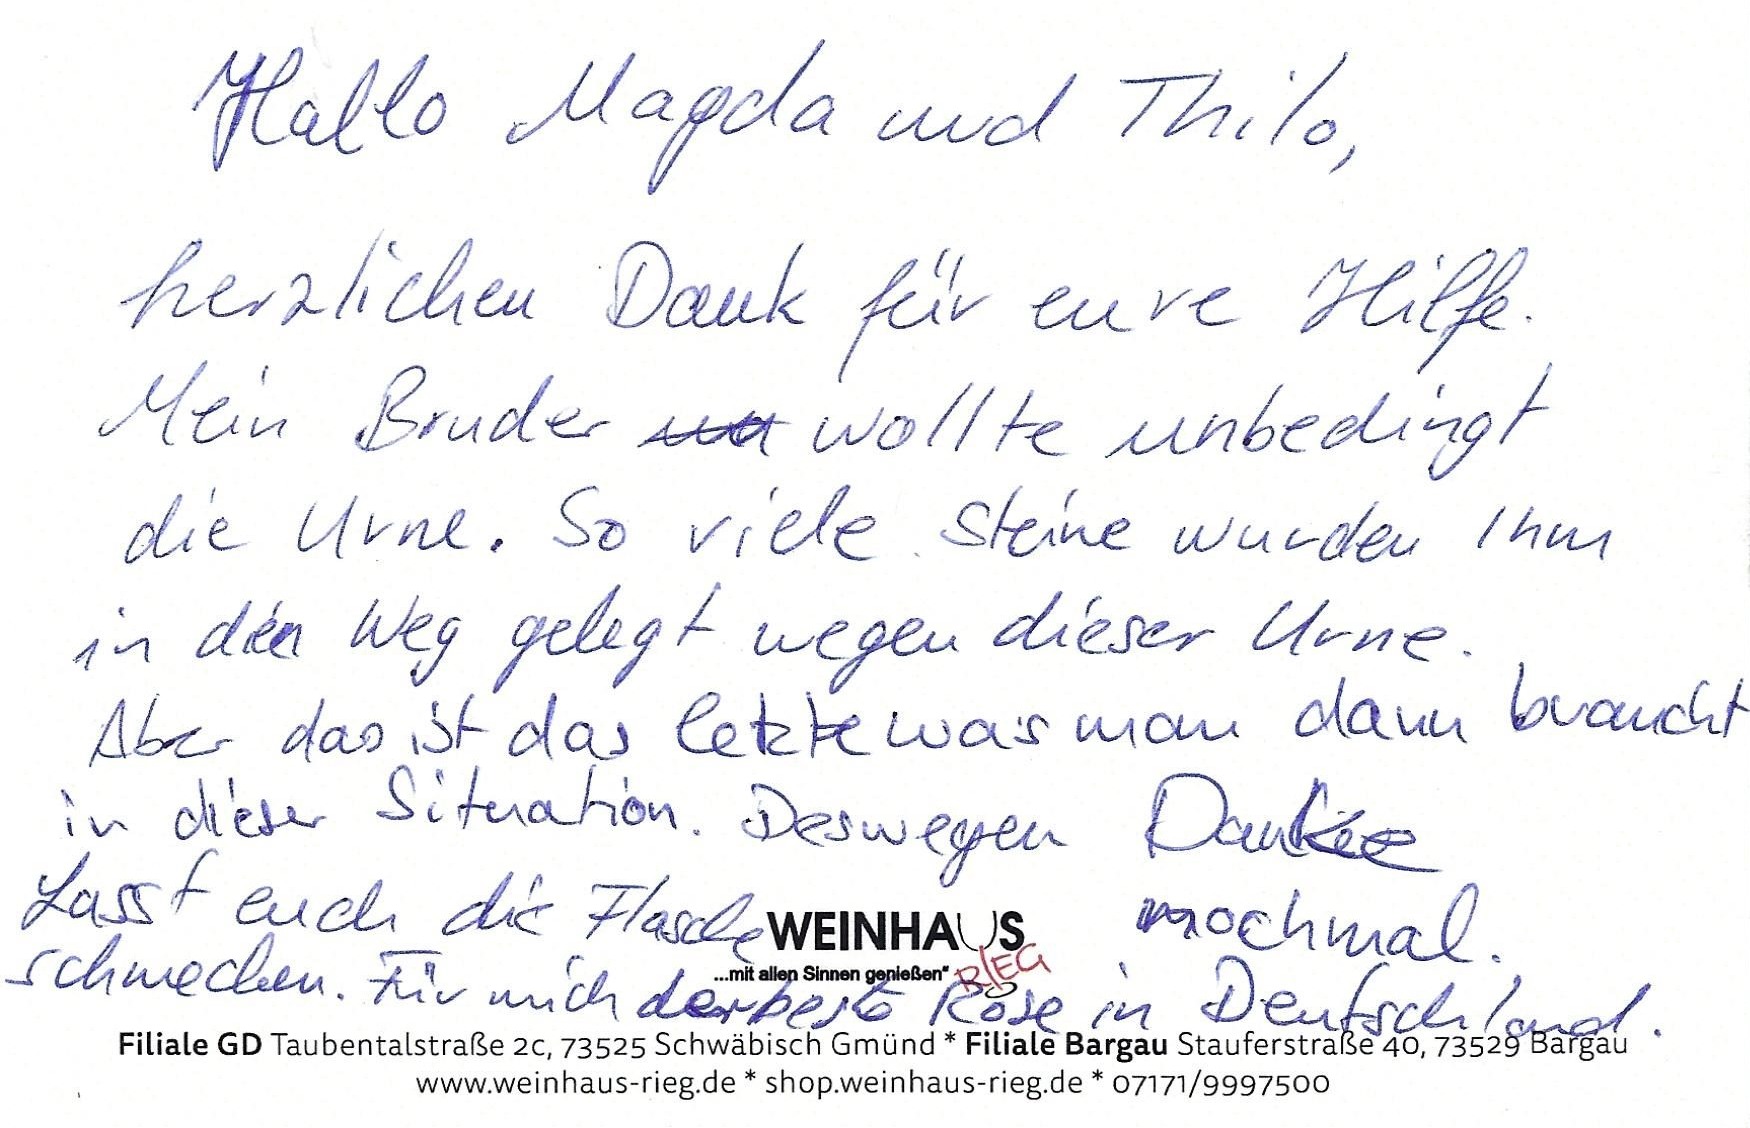 Hallo Magda und Thilo,
herzlichen Dank für eure Hilfe.
Mein Bruder wollte unbedingt
die Urne. So viele Steine wurden Ihm
in den Weg gelegt wegen dieser Urne.
Aber das ist das letzte was man dann braucht
in dieser Situation. Deswegen Danke
nochmal.
Lasst euch die Flasche
schmecken. Für mich der beste Rose in Deutschland.
WEINHAUS
RIEG
...mit allen Sinnen genießen"
Filiale GD Taubentalstraße 2c, 73525 Schwäbisch Gmünd * Filiale Bargau Stauferstraße 40, 73529 Bargau
www.weinhaus-rieg.de * shop.weinhaus-rieg.de * 07171/9997500